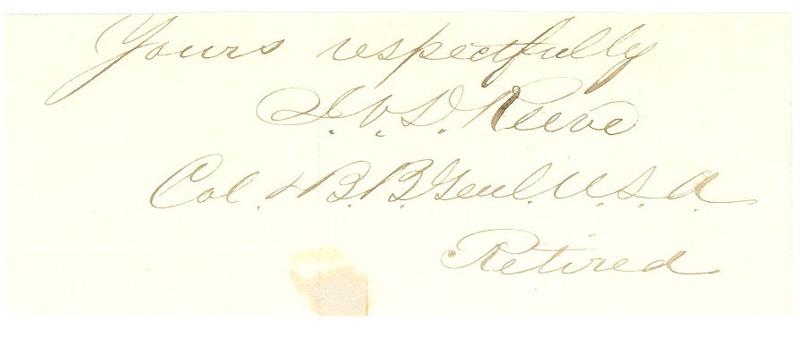 Yours respectfully
I. V. D. Reeve
Col. & B. B. Genl. U. S. A.
Retired